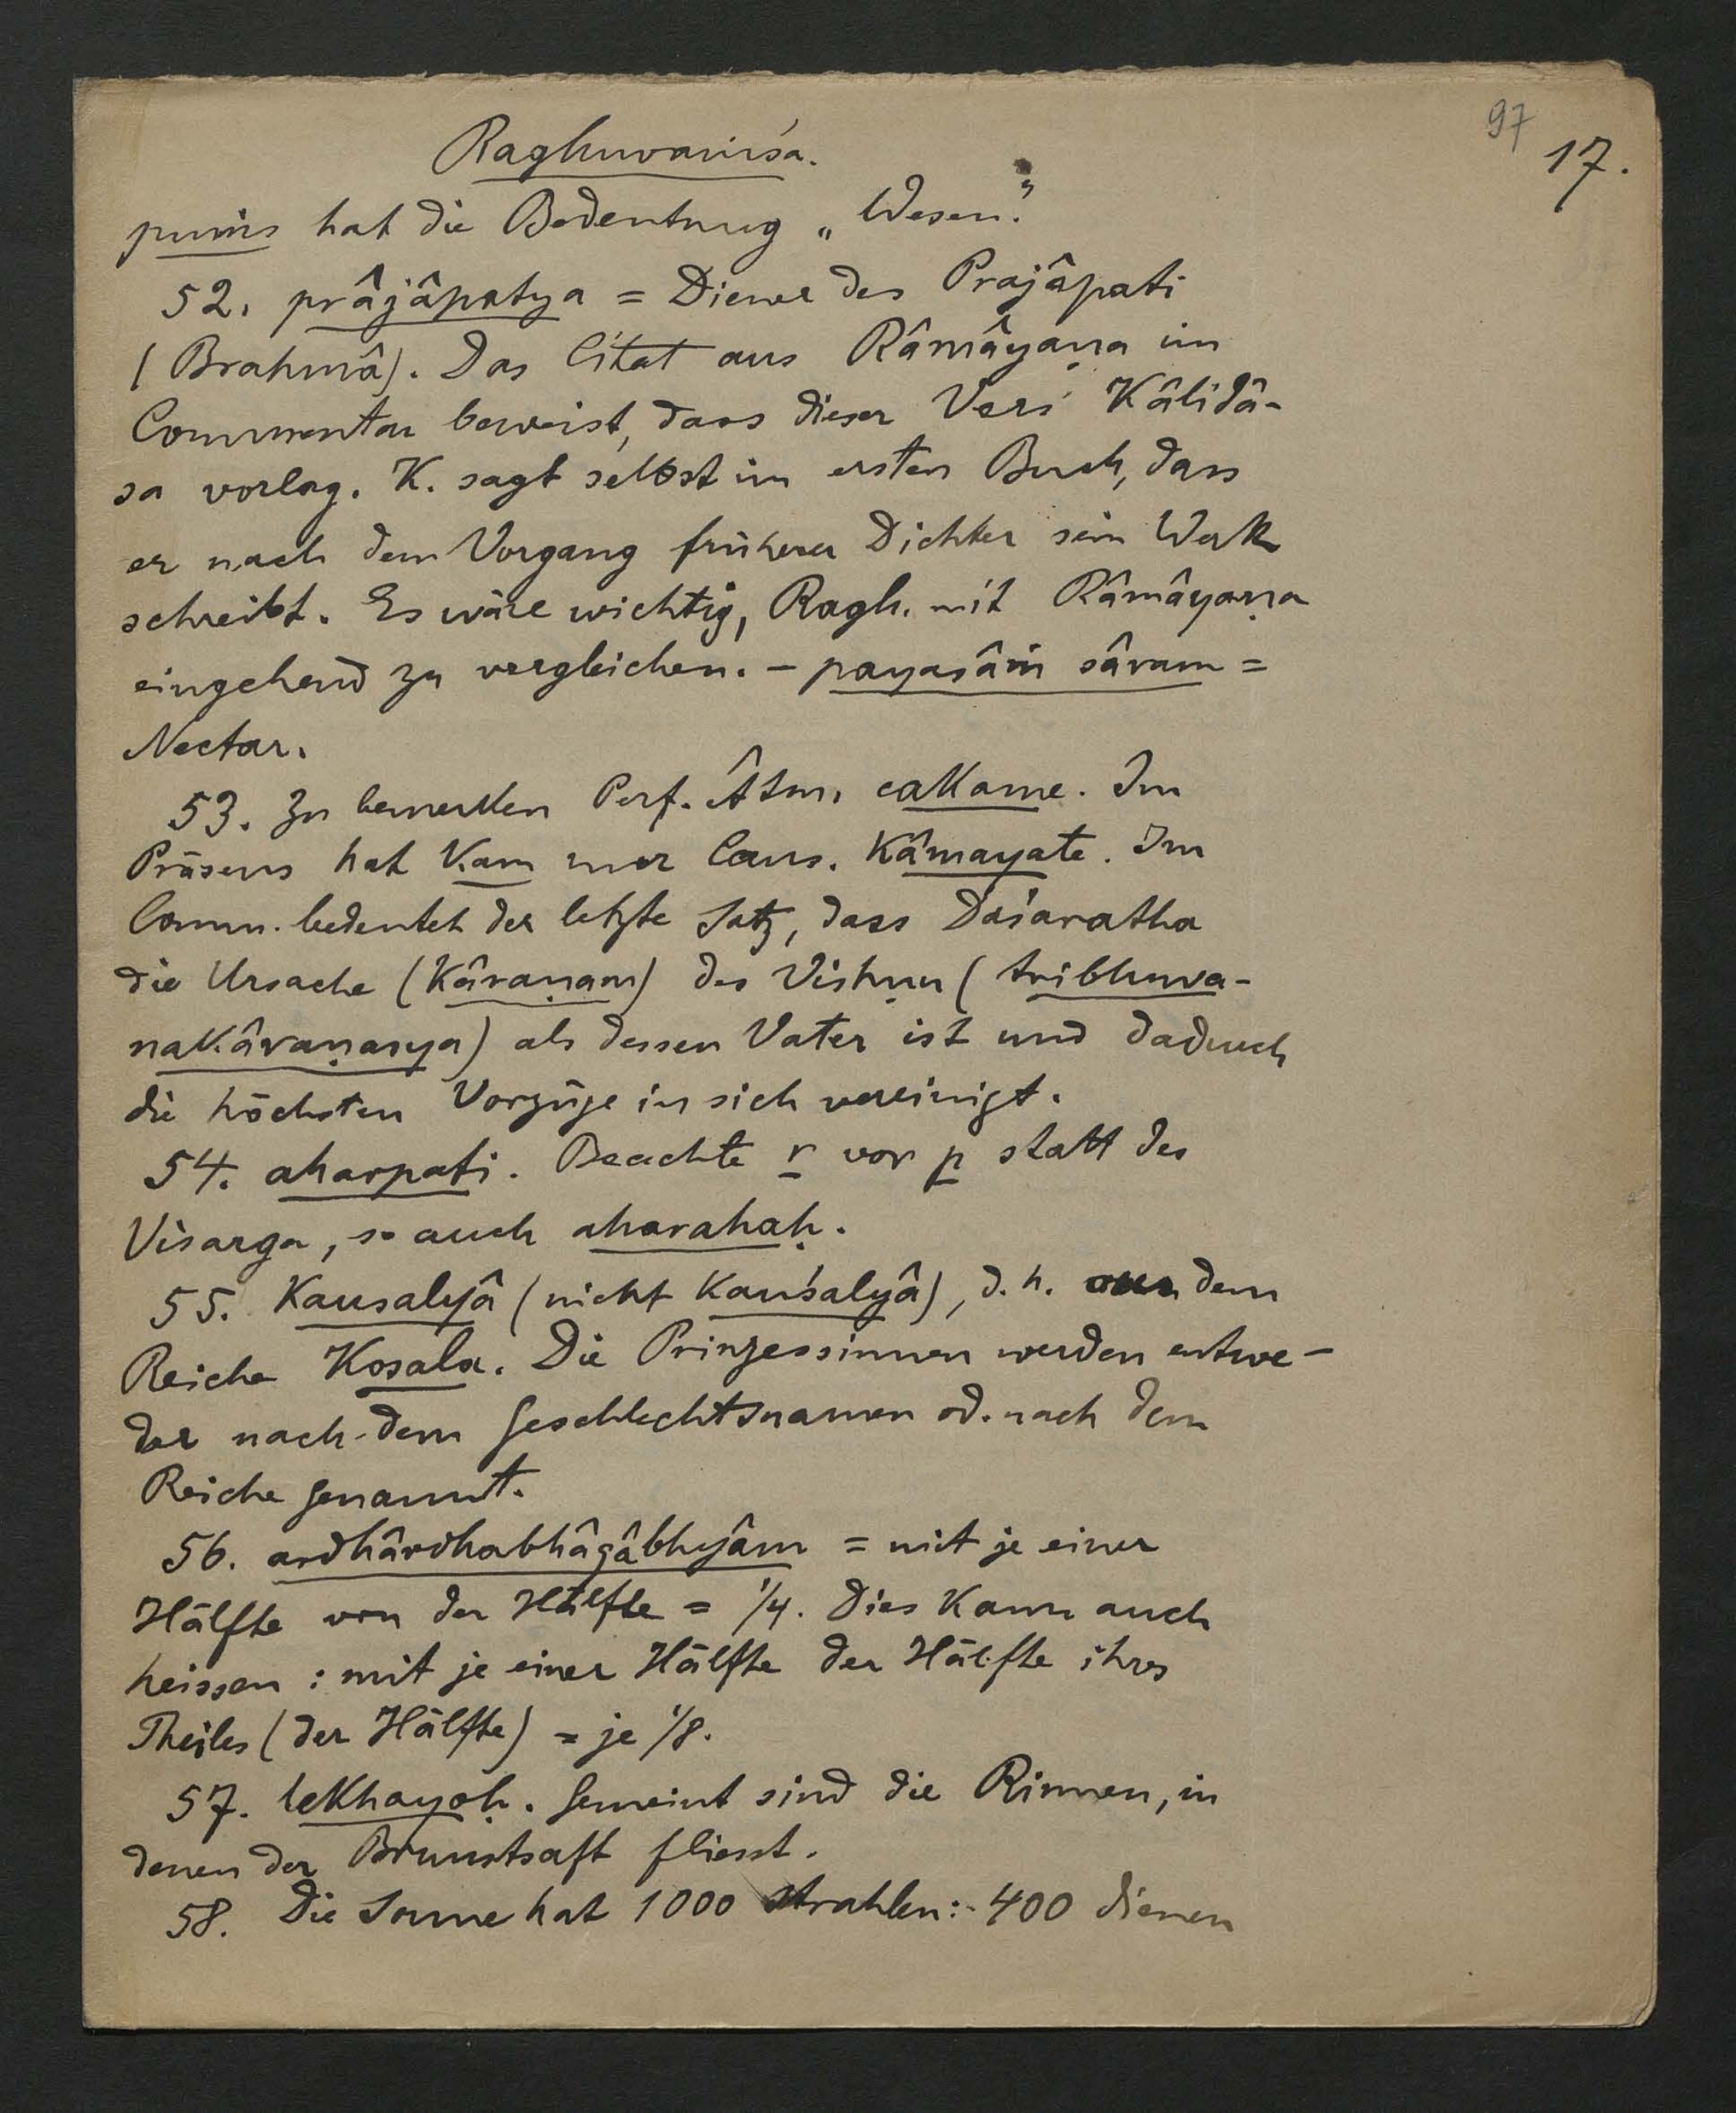 97
17.
Raghuvaṁśa.
puṁs hat die Bedeutung „Wesen".
52. prâjâpatya = Diener des Prajâpati
(Brahmâ). Das Citat aus Râmâyaṇa im
Commentar beweist, dass dieser Vers Kâlidâ-
sa vorlag. K. sagt selbst im ersten Buch, dass
er nach dem Vorgang früherer Dichter sein Werk
schreibt. Es wäre wichtig, Ragh. mit Râmâyaṇa
eingehend zu vergleichen. – payasâṁ sâram =
Nectar.
53. Zu bemerken Perf. Âtm. cakame. Im
Präsens hat kam nur Caus. kâmayate. Im
Comm. bedeutet der letzte Satz, dass Daśaratha
die Ursache (kâraṇam) des Vishṇu (tribhuva-
nakâraṇasya) als dessen Vater ist und dadurch
die höchsten Vorzüge in sich vereinigt.
54. aharpati. Beachte r vor p statt des
Visarga, so auch aharahaḥ.
55. Kausalyâ (nicht Kauśalyâ), d. h. aus dem
Reiche Kosala. Die Prinzessinnen werden entwe-
der nach dem Geschlechtsnamen od. nach dem
Reiche genannt.
56. ardhârdhabhâgâbhyâm = mit je einer
Hälfte von der Hälfte = 1/4. Dies kann auch
heissen: mit je einer Hälfte der Hälfte ihres
Theiles (der Hälfte) = je 1/8.
57. lekhayoḥ. Gemeint sind die Rinnen, in
denen der Brunstsaft fliesst.
58. Die Sonne hat 1000 Strahlen: 400 dienen